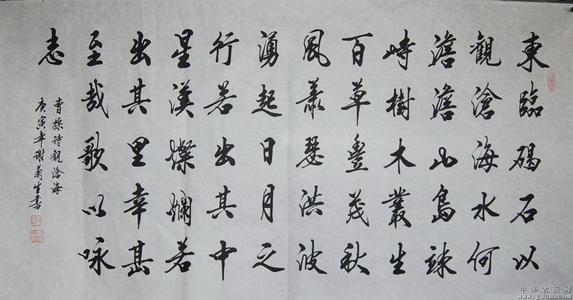 東臨碣石以
觀滄海水何
澹澹山島竦
峙樹木叢生
百草豐茂秋
風蕭瑟洪波
湧起日月之
行若出其中
星漢燦爛若
出其里幸甚
至哉歌以咏
志
曹操诗觀滄海
庚寅年謝菊生書